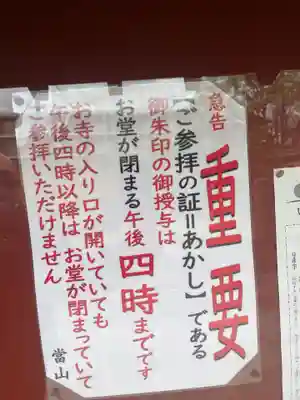 急告
重要
【ご参拝の証=あかし】である
御朱印の御授与は
お堂が閉まる午後四時までです
お寺の入り口が開いていても
午後四時以降は お堂が閉まっていて
ご参拝いただけません
當山